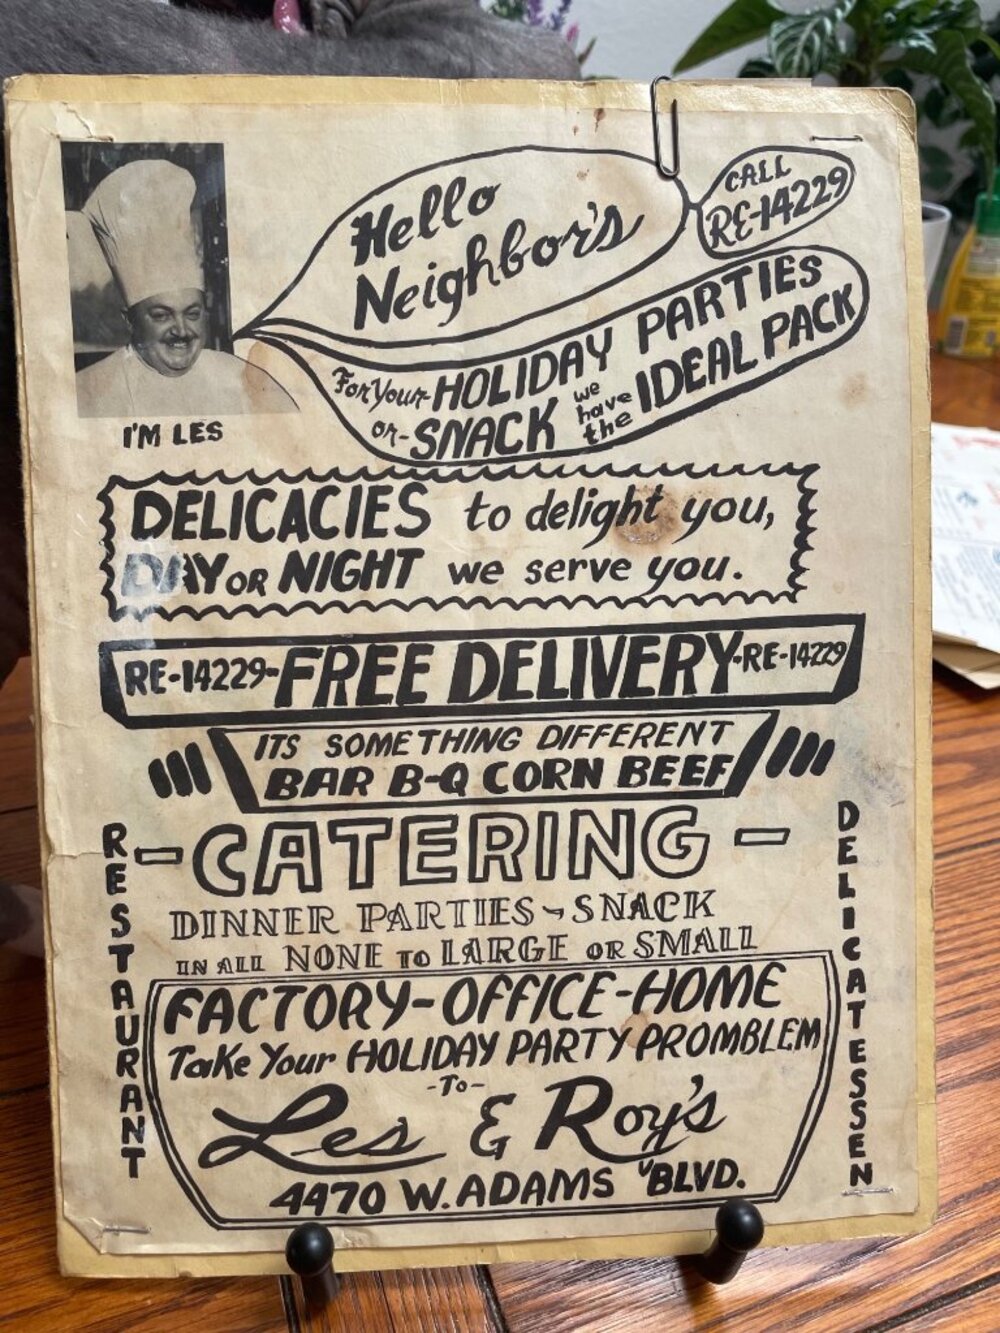 Hello
Neighbor's
CALL
RE-14229
For Your HOLIDAY PARTIES
or-SNACK we have the IDEAL PACK
I'M LES
DELICACIES to delight you,
DAY OR NIGHT we serve you.
RE-14229-FREE DELIVERY-RE-14229
ITS SOMETHING DIFFERENT
BAR B-Q CORN BEEF
-CATERING-
DINNER PARTIES-SNACK
IN ALL NONE TO LARGE OR SMALL
RESTAURANT
DELICATESSEN
FACTORY-OFFICE-HOME
Take Your HOLIDAY PARTY PROMBLEM
-To-
Les & Roy's
4470 W. ADAMS BLVD.